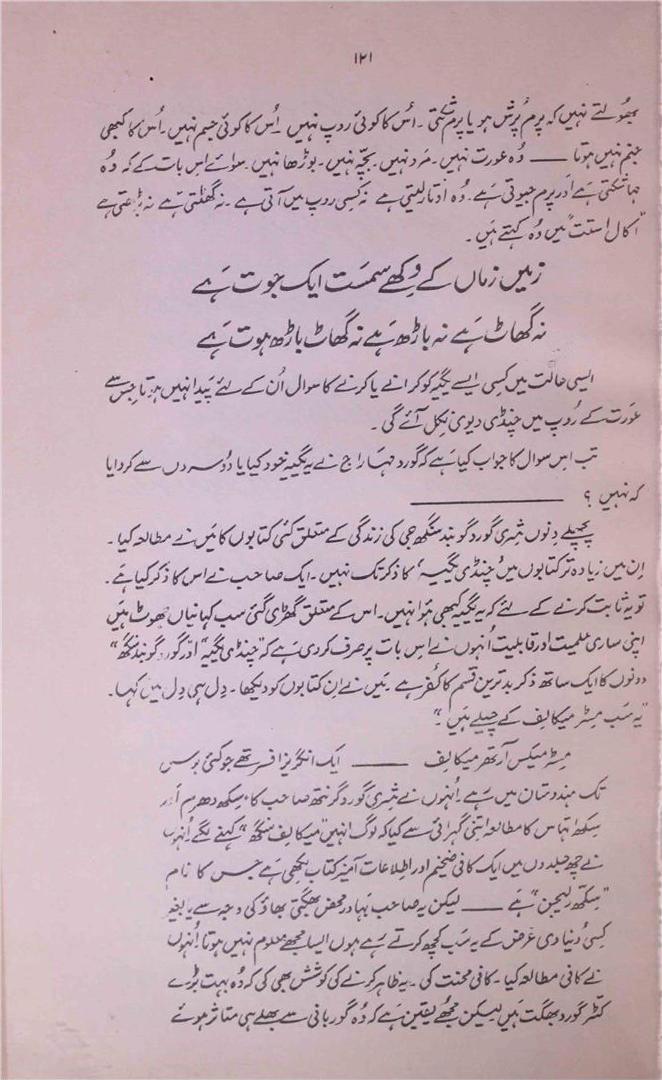 ۱۲۱
بھولتے نہیں کہ پرم پُرش ہو یا پرم شکتی۔ اُس کا کوئی روپ نہیں۔ اُس کا کوئی جسم نہیں۔ اُس کا کبھی
جنم نہیں ہوتا ــــــ وُہ عورت نہیں۔ مرد نہیں۔ بچّہ نہیں۔ بوڑھا نہیں۔ سوائے اس بات کے کہ وُہ
مہا شکتی ہے اَور پرم جیوتی ہے۔ وُہ اوتار لیتی ہے نہ کسی روپ میں آتی ہے۔ نہ گھٹتی ہے نہ بڑھتی ہے
"اکال استت" میں وُہ کہتے ہیں۔
زمیں زماں کے وِکھے سمست ایک جوت ہے
نہ گھاٹ ہے نہ باڑھ ہے نہ گھاٹ باڑھ ہوت ہے
ایسی حالت میں کسی ایسے یگیہ کو کرانے یا کرنے کا سوال اُن کے لئے پَیدا نہیں ہوتا جِس سے
عورت کے رُوپ میں چنڈی دیوی نِکل آئے گی۔
تب اِس سوال کا جواب کیا ہے کہ گورو مہاراج نے یہ یگیہ خود کیا یا دُوسروں سے کروایا
کہ نہیں ؟ ــــــــــــ
پچھلے دِنوں شری گورو گوبند سنگھ جی کی زندگی کے متعلق کئی کتابوں کا مَیں نے مطالعہ کیا۔
اِن میں زیادہ تر کتابوں میں "چنڈی یگیہ" کا ذکر تک نہیں۔ ایک صاحب نے اس کا ذکر کیا ہے۔
تو یہ ثابت کرنے کے لئے کہ یہ یگیہ کبھی ہُوا نہیں۔ اس کے متعلق گھڑی گئی سب کہانیاں جھوٹ ہیں
اپنی ساری علمیت اور قابلیت اُنہوں نے اس بات پر صرف کر دی ہے کہ "چنڈی یگیہ" اور "گورو گوبند سنگھ"
دونوں کا ایک ساتھ ذکر بدترین قسم کا کُفر ہے۔ مَیں نے اِن کتابوں کو دیکھا۔ دِل ہی دِل میں کہا۔
"یہ سب مسٹر میکالِف کے چیلے ہَیں"۔
مِسٹر میکس آرتھر میکالِف ــــــ ایک انگریز افسر تھے جو کئی برس
تک ہندوستان میں رہے۔ اُنہوں نے شری گورو گرنتھ صاحب کا، سِکھ دھرم اور
سِکھ اتہاس کا مطالعہ اِتنی گہرائی سے کیا کہ لوگ انہیں "میکالِف سنگھ" کہنے لگے۔ اُنہوں
نے چھ جلدوں میں ایک کافی ضخیم اور اطلاعات آمیز کتاب لکھی ہے جِس کا نام
"سِکھ ریلیجن" ہے ــــــ لیکن یہ صاحب بہادر محض بھگتی بھاؤ کی وجہ سے یا بغیر
کِسی دُنیاوی غرض کے یہ سب کچھ کرتے رہے ہوں ایسا مجھے معلوم نہیں ہوتا۔ اُنہوں
نے کافی مطالعہ کیا۔ کافی محنت کی۔ یہ ظاہر کرنے کی کوشش بھی کی کہ وُہ بہت بڑے
کٹّر گورو بھگت ہیں لیکن مجھے یقین ہے کہ وُہ گوربانی سے بھلے ہی متاثر ہوئے